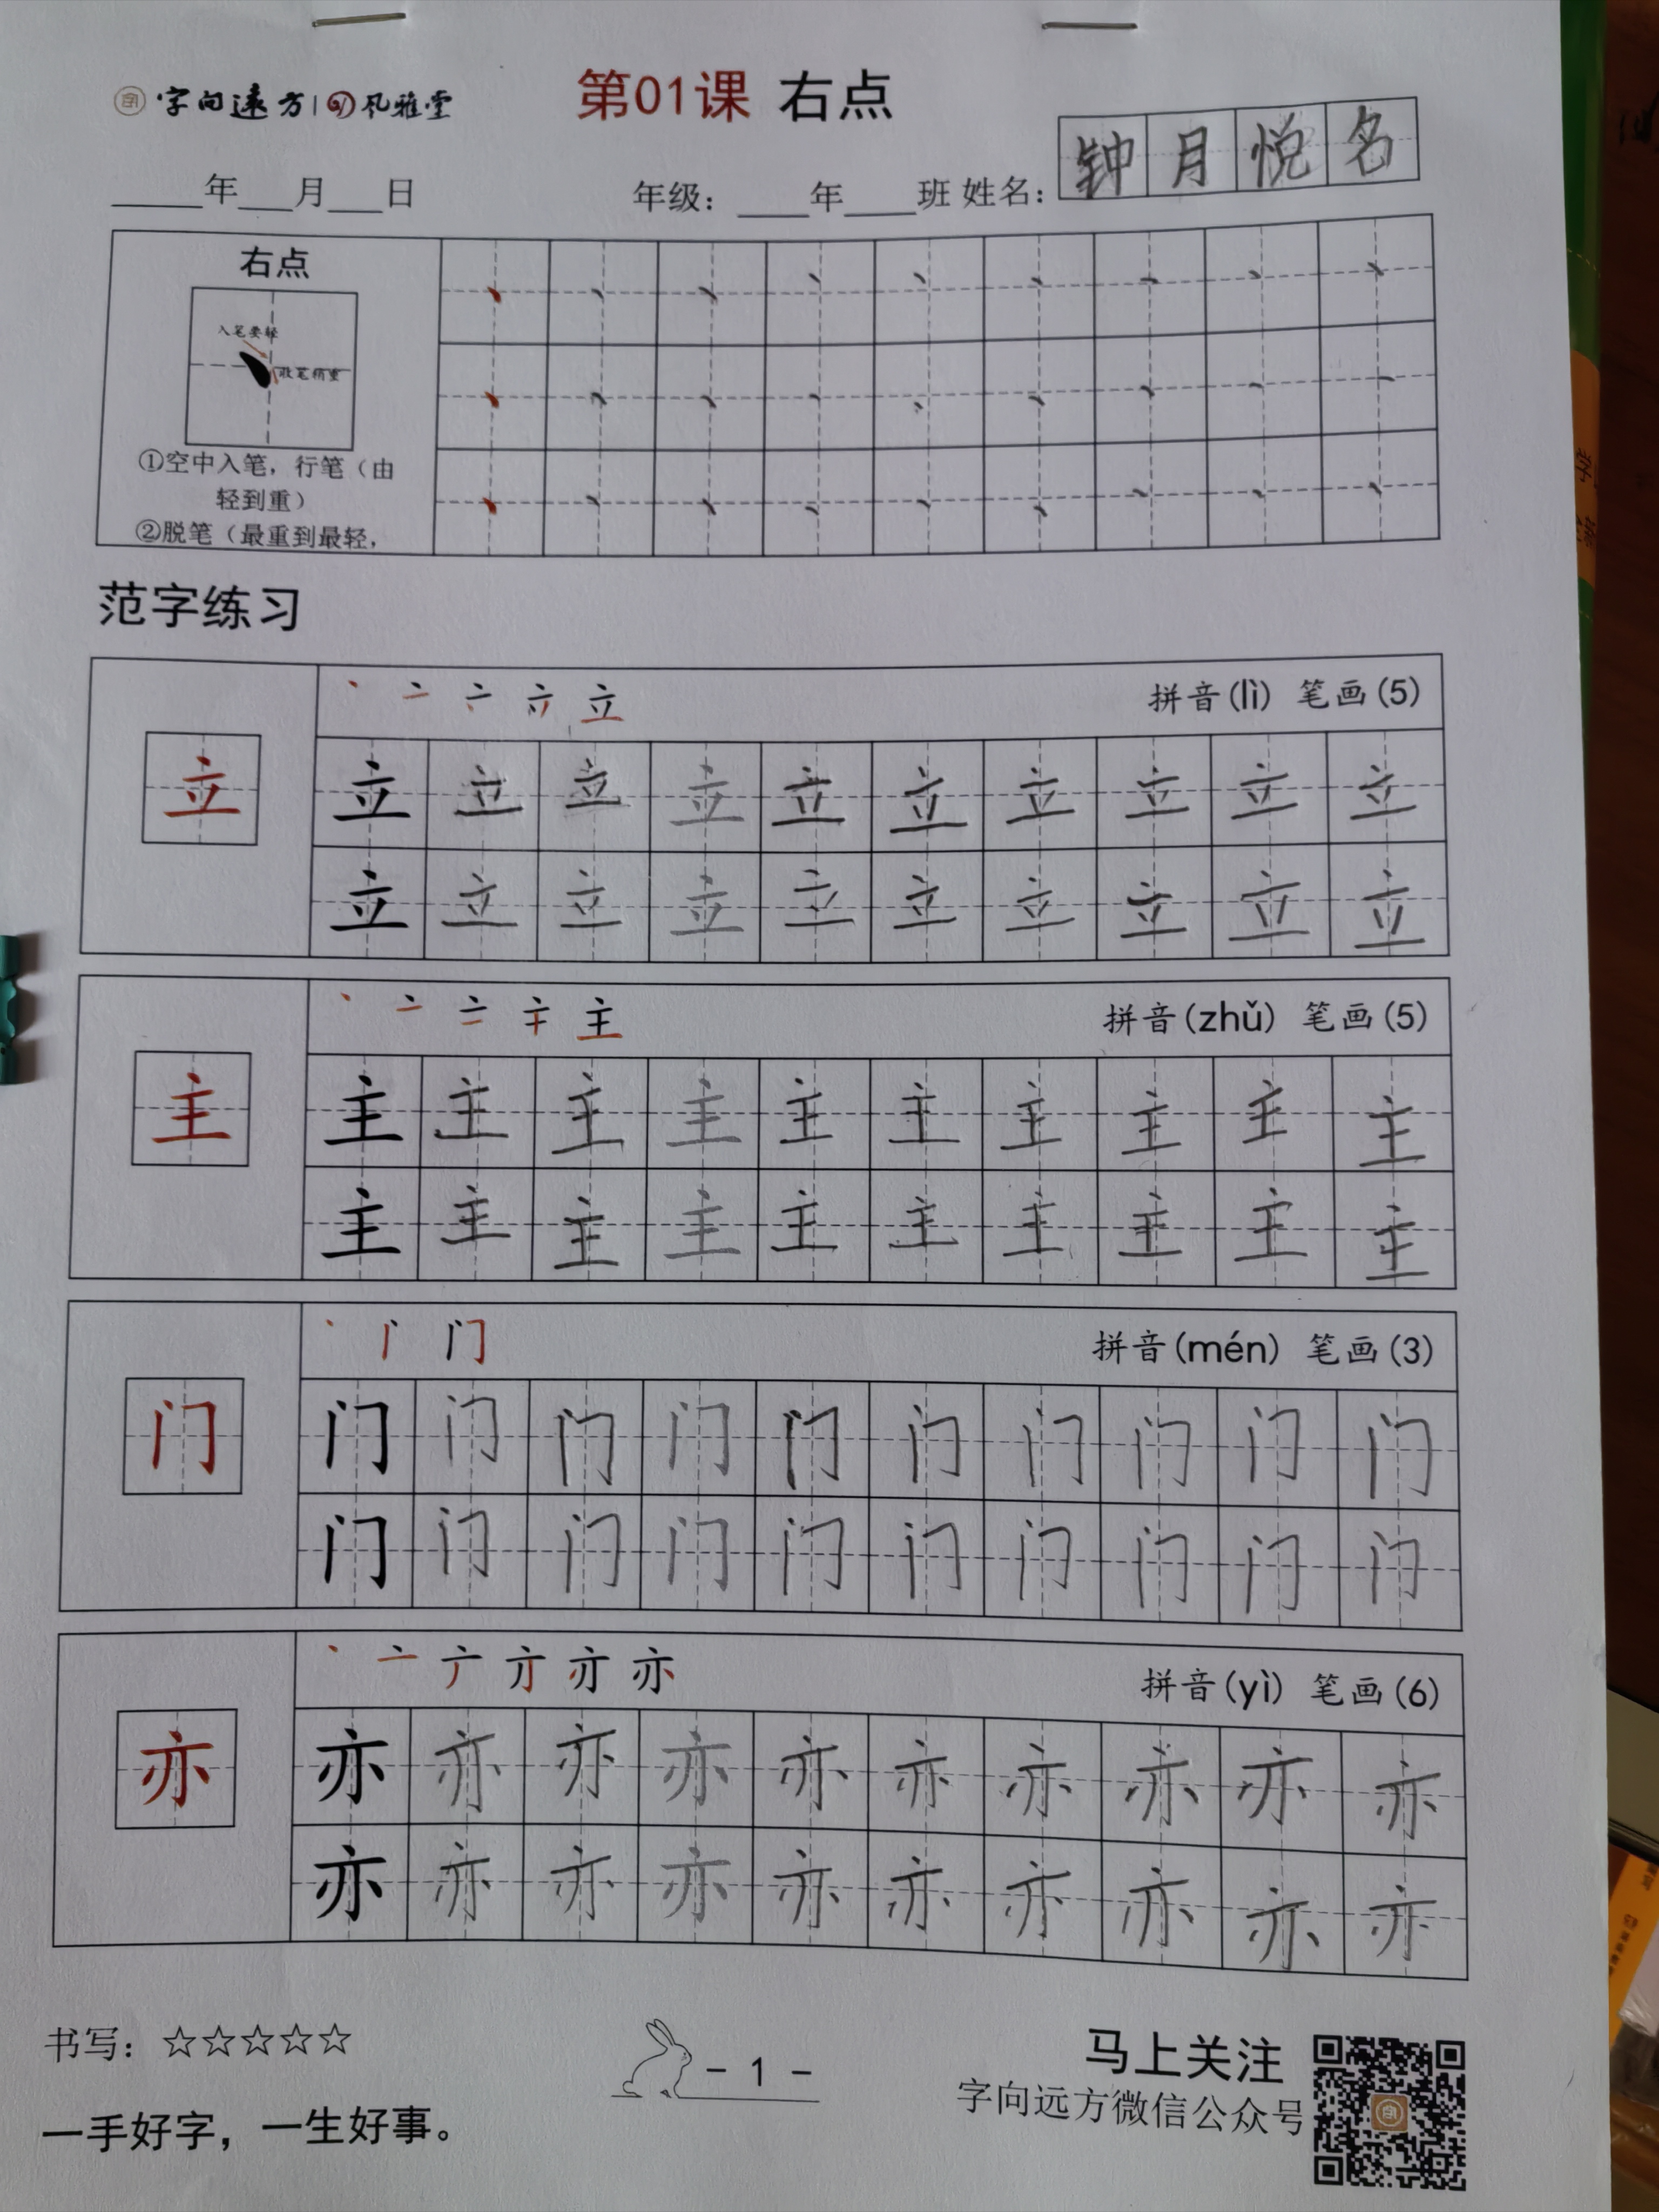 字向遠方 | 风雅堂
第01课 右点
钟月悦名
____年__月__日 年级：___年___班 姓名：
右点
入笔要轻
收笔稍重
①空中入笔，行笔（由
轻到重）
②脱笔（最重到最轻，
范字练习
拼音(lì) 笔画(5)
立 立 立 立 立 立 立 立 立 立 立
立 立 立 立 立 立 立 立 立 立
拼音(zhǔ) 笔画(5)
主 主 主 主 主 主 主 主 主 主 主
主 主 主 主 主 主 主 主 主 主
拼音(mén) 笔画(3)
门 门 门 门 门 门 门 门 门 门 门
门 门 门 门 门 门 门 门 门 门
拼音(yì) 笔画(6)
亦 亦 亦 亦 亦 亦 亦 亦 亦 亦 亦
亦 亦 亦 亦 亦 亦 亦 亦 亦 亦
书写：☆☆☆☆☆
- 1 -
马上关注
字向远方微信公众号
一手好字，一生好事。